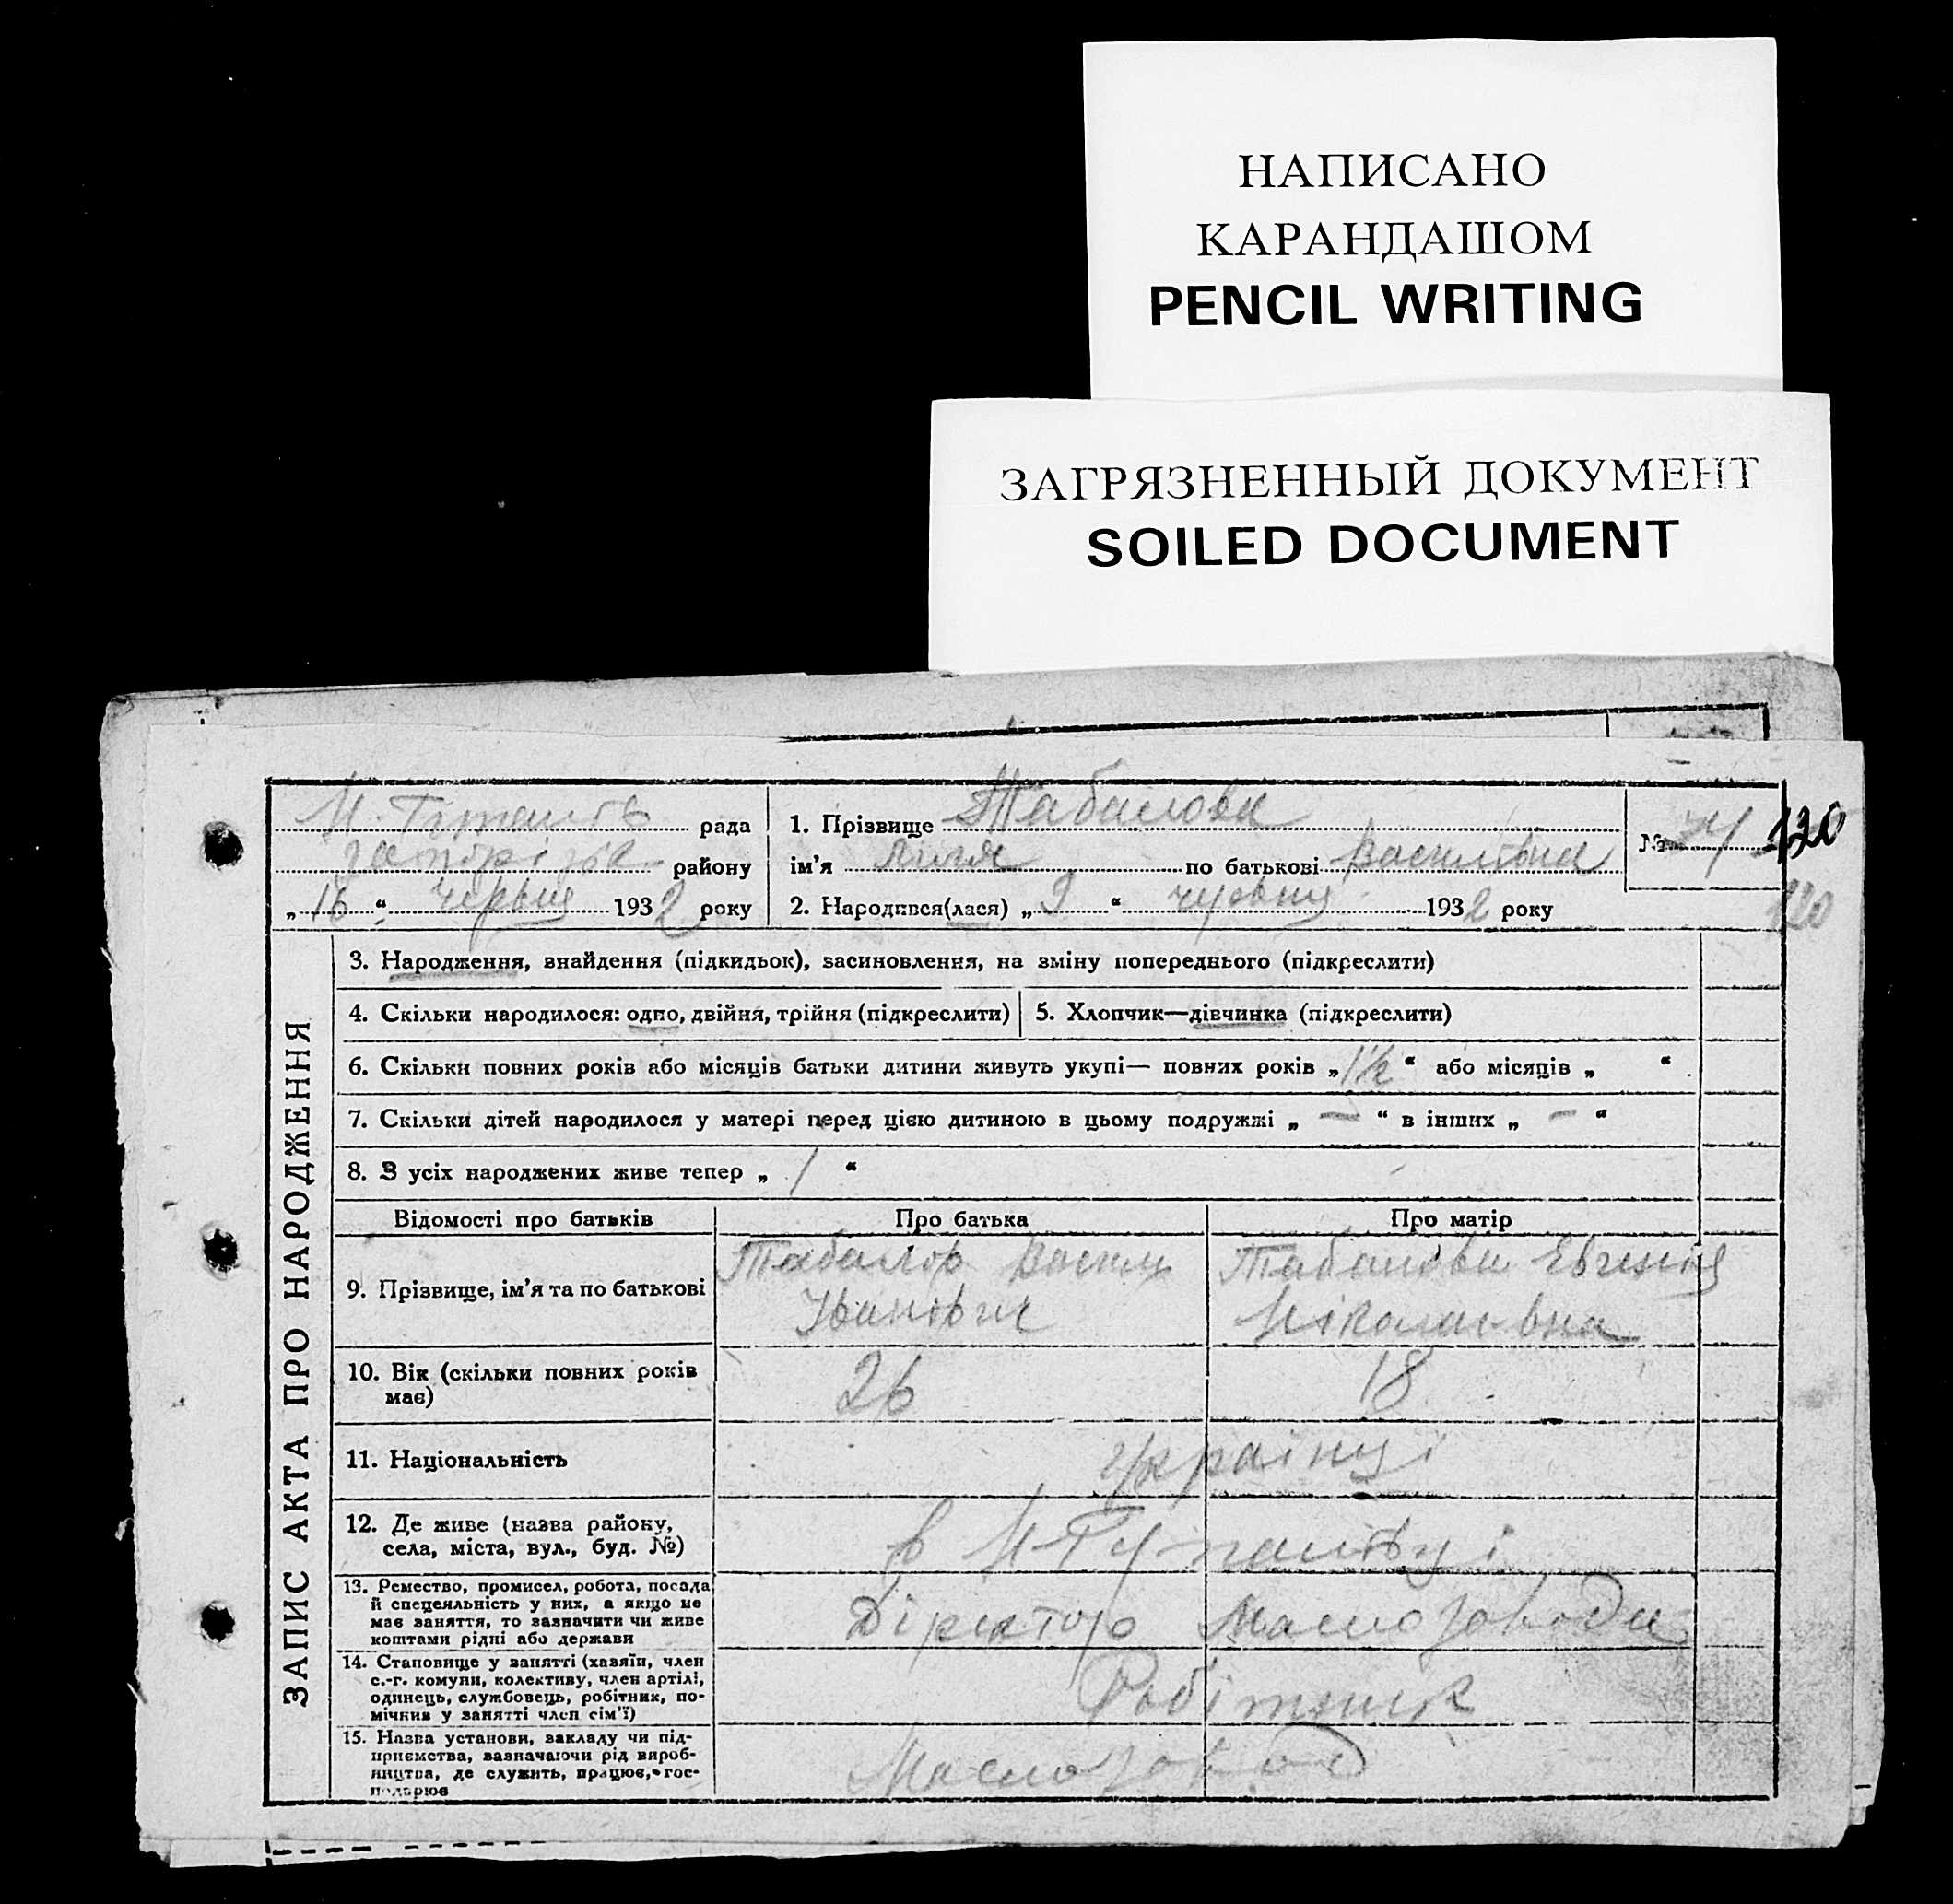 НАПИСАНО
КАРАНДАШОМ
PENCIL WRITING
ЗАГРЯЗНЕННЫЙ ДОКУМЕНТ
SOILED DOCUMENT
ЗАПИС АКТА ПРО НАРОДЖЕННЯ
рада
району
„16“ червня 1932 року
1. Прізвище
ім’я Лиля по батькові Василівна
2. Народився(лася) „9“ червня 1932 року
№ 120
120
3. Народження, знайдення (підкидьок), засиновлення, на зміну попереднього (підкреслити)
4. Скільки народилося: одно, двійня, трійня (підкреслити)
5. Хлопчик—дівчинка (підкреслити)
6. Скільки повних років або місяців батьки дитини живуть укупі— повних років „1½“ або місяців „ “
7. Скільки дітей народилося у матері перед цією дитиною в цьому подружжі „ — “ в інших „ — “
8. З усіх народжених живе тепер „ 1 “
Відомості про батьків
Про батька
Про матір
9. Прізвище, ім’я та по батькові
Іванович
Евгенія
Міколаєвна
10. Вік (скільки повних років
має)
26
18
11. Національність
українці
12. Де живе (назва району,
села, міста, вул., буд. №)
в
13. Ремество, промисел, робота, посада
й спецеяльність у них, а якщо не
має заняття, то зазначити чи живе
коштами рідні або держави
Діректор Маслозавода
14. Становище у занятті (хазяїн, член
с.-г. комуни, колективу, член артілі,
одинець, службовець, робітник, по-
мічник у занятті член сім’ї)
Робітник
15. Назва установи, закладу чи під-
приємства, зазначаючи рід вироб-
ництва, де служить, працює, гос-
подарює
Маслозавод